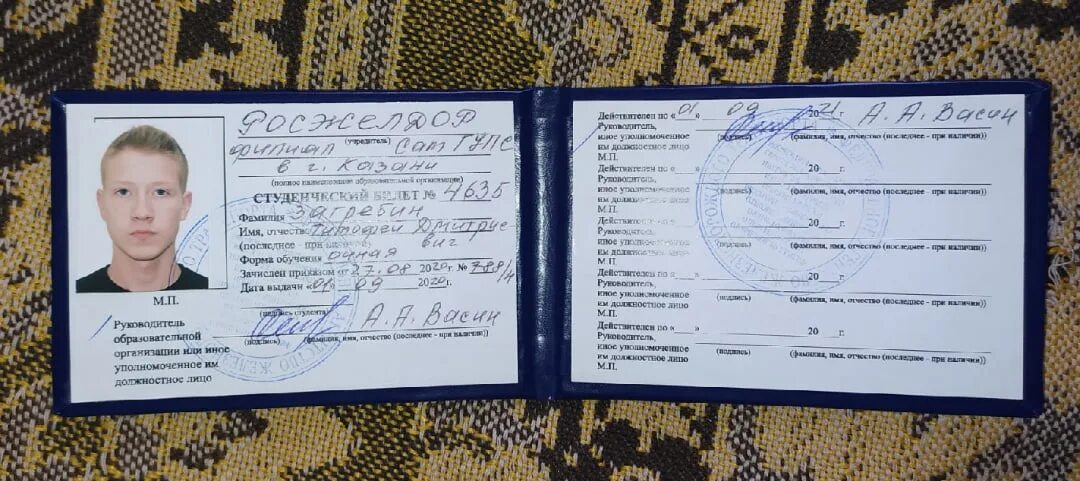 РОСЖЕЛДОР
(учредитель)
филиал СамГУПС
в г. Казани
(полное наименование образовательной организации)
СТУДЕНЧЕСКИЙ БИЛЕТ № 4635
Фамилия Загребин
Имя, отчество Тимофей Дмитрие
(последнее - при наличии) вич
Форма обучения очная
Зачислен приказом от 27.08 2020г. № 788/л
Дата выдачи «01» 09 2020г.
(подпись студента)
М.П.
Руководитель
образовательной
организации или иное
уполномоченное им
должностное лицо
А.А. Васин
(подпись) (фамилия, имя, отчество (последнее - при наличии))
Действителен по «01» 09 2021 г. А. А. Васин
Руководитель,
иное уполномоченное (подпись) (фамилия, имя, отчество (последнее - при наличии))
им должностное лицо
М.П.
Действителен по «__» 20__г.
Руководитель,
иное уполномоченное (подпись) (фамилия, имя, отчество (последнее - при наличии))
им должностное лицо
М.П.
Действителен по «__» 20__г.
Руководитель,
иное уполномоченное (подпись) (фамилия, имя, отчество (последнее - при наличии))
им должностное лицо
М.П.
Действителен по «__» 20__г.
Руководитель,
иное уполномоченное (подпись) (фамилия, имя, отчество (последнее - при наличии))
им должностное лицо
М.П.
Действителен по «__» 20__г.
Руководитель,
иное уполномоченное (подпись) (фамилия, имя, отчество (последнее - при наличии))
им должностное лицо
М.П.